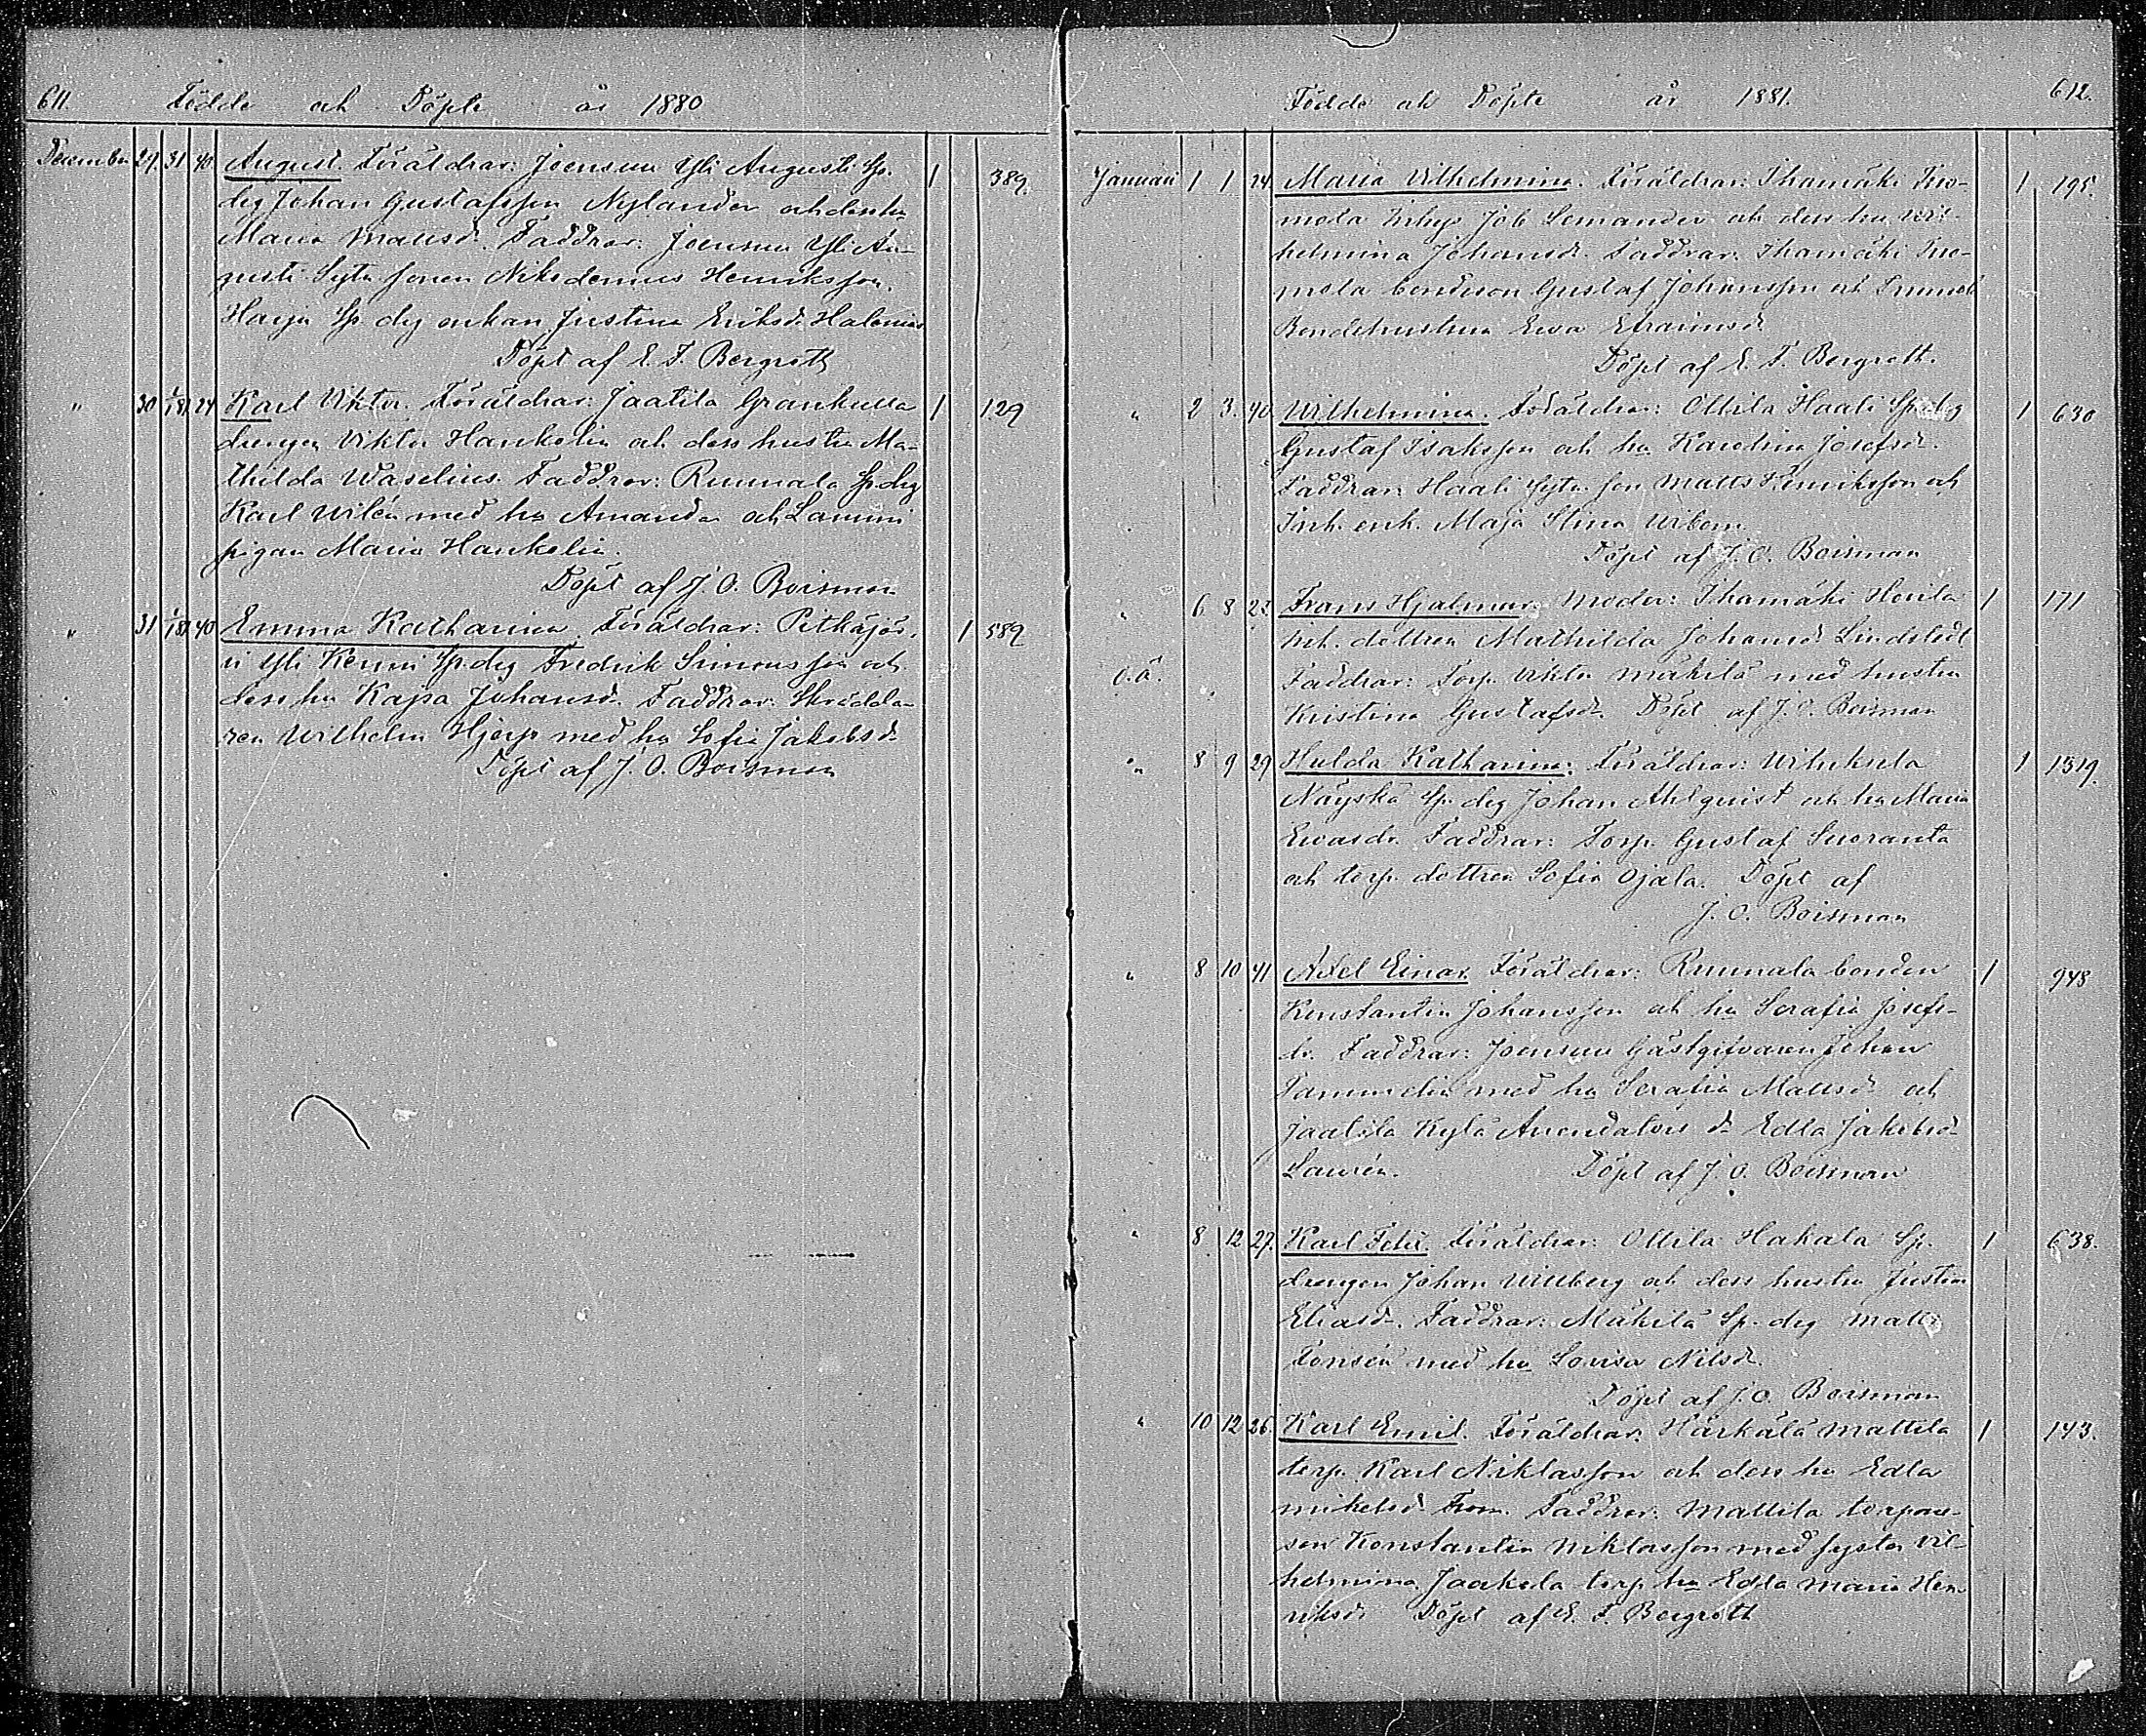 611. Födde och Döpte år 1880
December 29. 31 40. August. Föräldrar: Joensuu Yli Augusti Sp. 1 389.
dg Johan Gustafsson Nylander och dess hu
Maria Mattsd. Faddrar: Joensuu Yli Au-
gusti Sytn. sonen Nikodemus Henriksson.
Harju Sp. dg enkan Justina Eriksd. Halenius
Döpt af E. F. Bergroth
" 30 1/1 81 24 Karl Viktor. Föräldrar: Jaatila Grankulla 1 129
drengen Viktor Hankelin och dess hustru Ma-
thilda Waselius. Faddrar: Ruunala Sp. dg
Karl Wilén med hu Amanda och Lammi
pigan Maria Hankelin.
Döpt af J. O. Boisman
" 31 1/1 81 40 Emma Katharina. Föräldrar: Pitkäjär- 1 589
vi Yli Kenni Sp. dg Fredrik Simonsson och
dess hu Kajsa Johansd. Faddrar: Skrädda-
ren Wilhelm Hjerp med hu Sofia Jakobsd.
Döpt af J. O. Boisman
Födde och Döpte år 1881. 612.
Januari 1 1 24. Maria Wilhelmina. Föräldrar: Ihamäki Tuo- 1 195.
mola Inhys Job Lemander och dess hu Wil-
helmina Johansd. Faddrar: Ihamäki Tuo-
mola bondeson Gustaf Johansson och
Bondehustrun Ewa Efraimsd.
Döpt af E. F. Bergroth.
" 2 3. 40 Wilhelmina. Föräldrar: Ottila Haali Sp. dg 1 630
Gustaf Isaksson och hu Karolina Josefsd.
Faddrar: Haali Sytn. son Matts Henriksson och
Inh. enk. Maja Stina Wibom.
Döpt af J. O. Boisman
" 6 8 23. Frans Hjalmar. Moder: Ihamäki Herila 1 171
O. ä. Inh. dottren Mathilda Johansd. Lindstedt
Faddrar: Torp. Viktor Mäkilä med hustru
Kristina Gustafsd. Döpt af J. O. Boisman
" 8 9 29 Hulda Katharina. Föräldrar: Wiluksela 1 1519.
Näyskä Sp. dg Johan Ahlquist och hu Maria
Ewasdr. Faddrar: Torp. Gustaf Suoranta
och torp. dottren Sofia Ojala. Döpt af
J. O. Boisman
" 8 10 41 Axel Einar. Föräldrar: Ruunala bonden 1 948
Konstantin Johansson och hu Serafia Josefs-
dr. Faddrar: Joensuu Gästgifvaren Johan
Tammelin med hu Serafia Mattsd. och
Jaatila Kylä Arendators d. Edla Jakobsd.
Laurén. Döpt af J. O. Boisman
" 8. 12 27. Karl Felix. Föräldrar: Ottila Hakala Sp. 1 638.
drengen Johan Willberg och dess hustru Justina
Eliasd. Faddrar: Mäkilä Sp. dg Matts
Tonsén med hu Lovisa Nilsd.
Döpt af J. O. Boisman
" 10 12 26. Karl Emil. Föräldrar: Härkälä Mattila 1 143.
torp. Karl Niklasson och dess hu Edla
Mikelsd. From. Faddrar: Mattila torpare-
son Konstantin Niklasson med syster Vil-
helmina. Jaakola torp. hu Edla Maria Hen-
riksd. Döpt af E. F. Bergroth